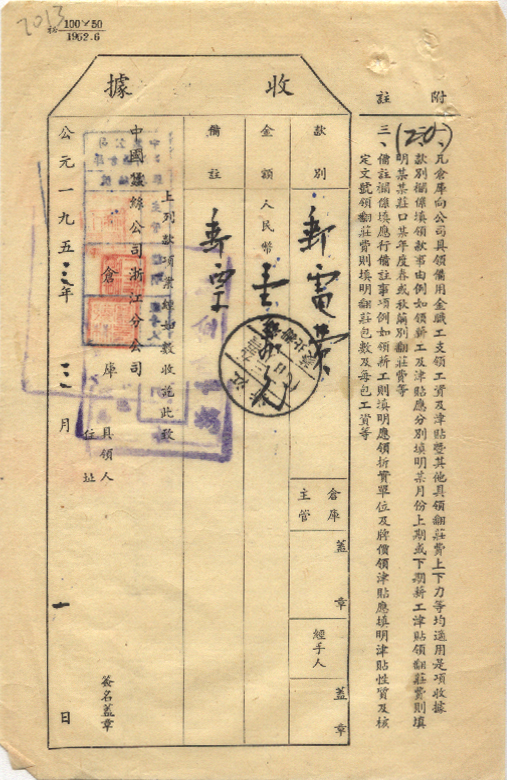 2013
100×50
1952.6
收據
款別
郵電費
金額
人民幣
備註
郵單
上列款項業經如數收訖此致
中國蠶絲公司浙江分公司
倉庫
具領人
住址
簽名蓋章
公元一九五三年
月
一日
倉庫主管
蓋章
經手人
蓋章
附註
(20)
凡倉庫向公司具領備用金職工支領工資及津貼暨其他具領翻莊費上下力等均適用是項收據
款別欄係填領款事由例如領薪工及津貼應分別填明某月份上期或下期薪工津貼領翻莊費則填
明某某莊口某年度春或秋繭別翻莊費等
三、備註欄係填應行備註事項例如領薪工則填明應領折實單位及牌價領津貼應填明津貼性質及核
定文號領翻莊費則填明翻莊包數及每包工資等